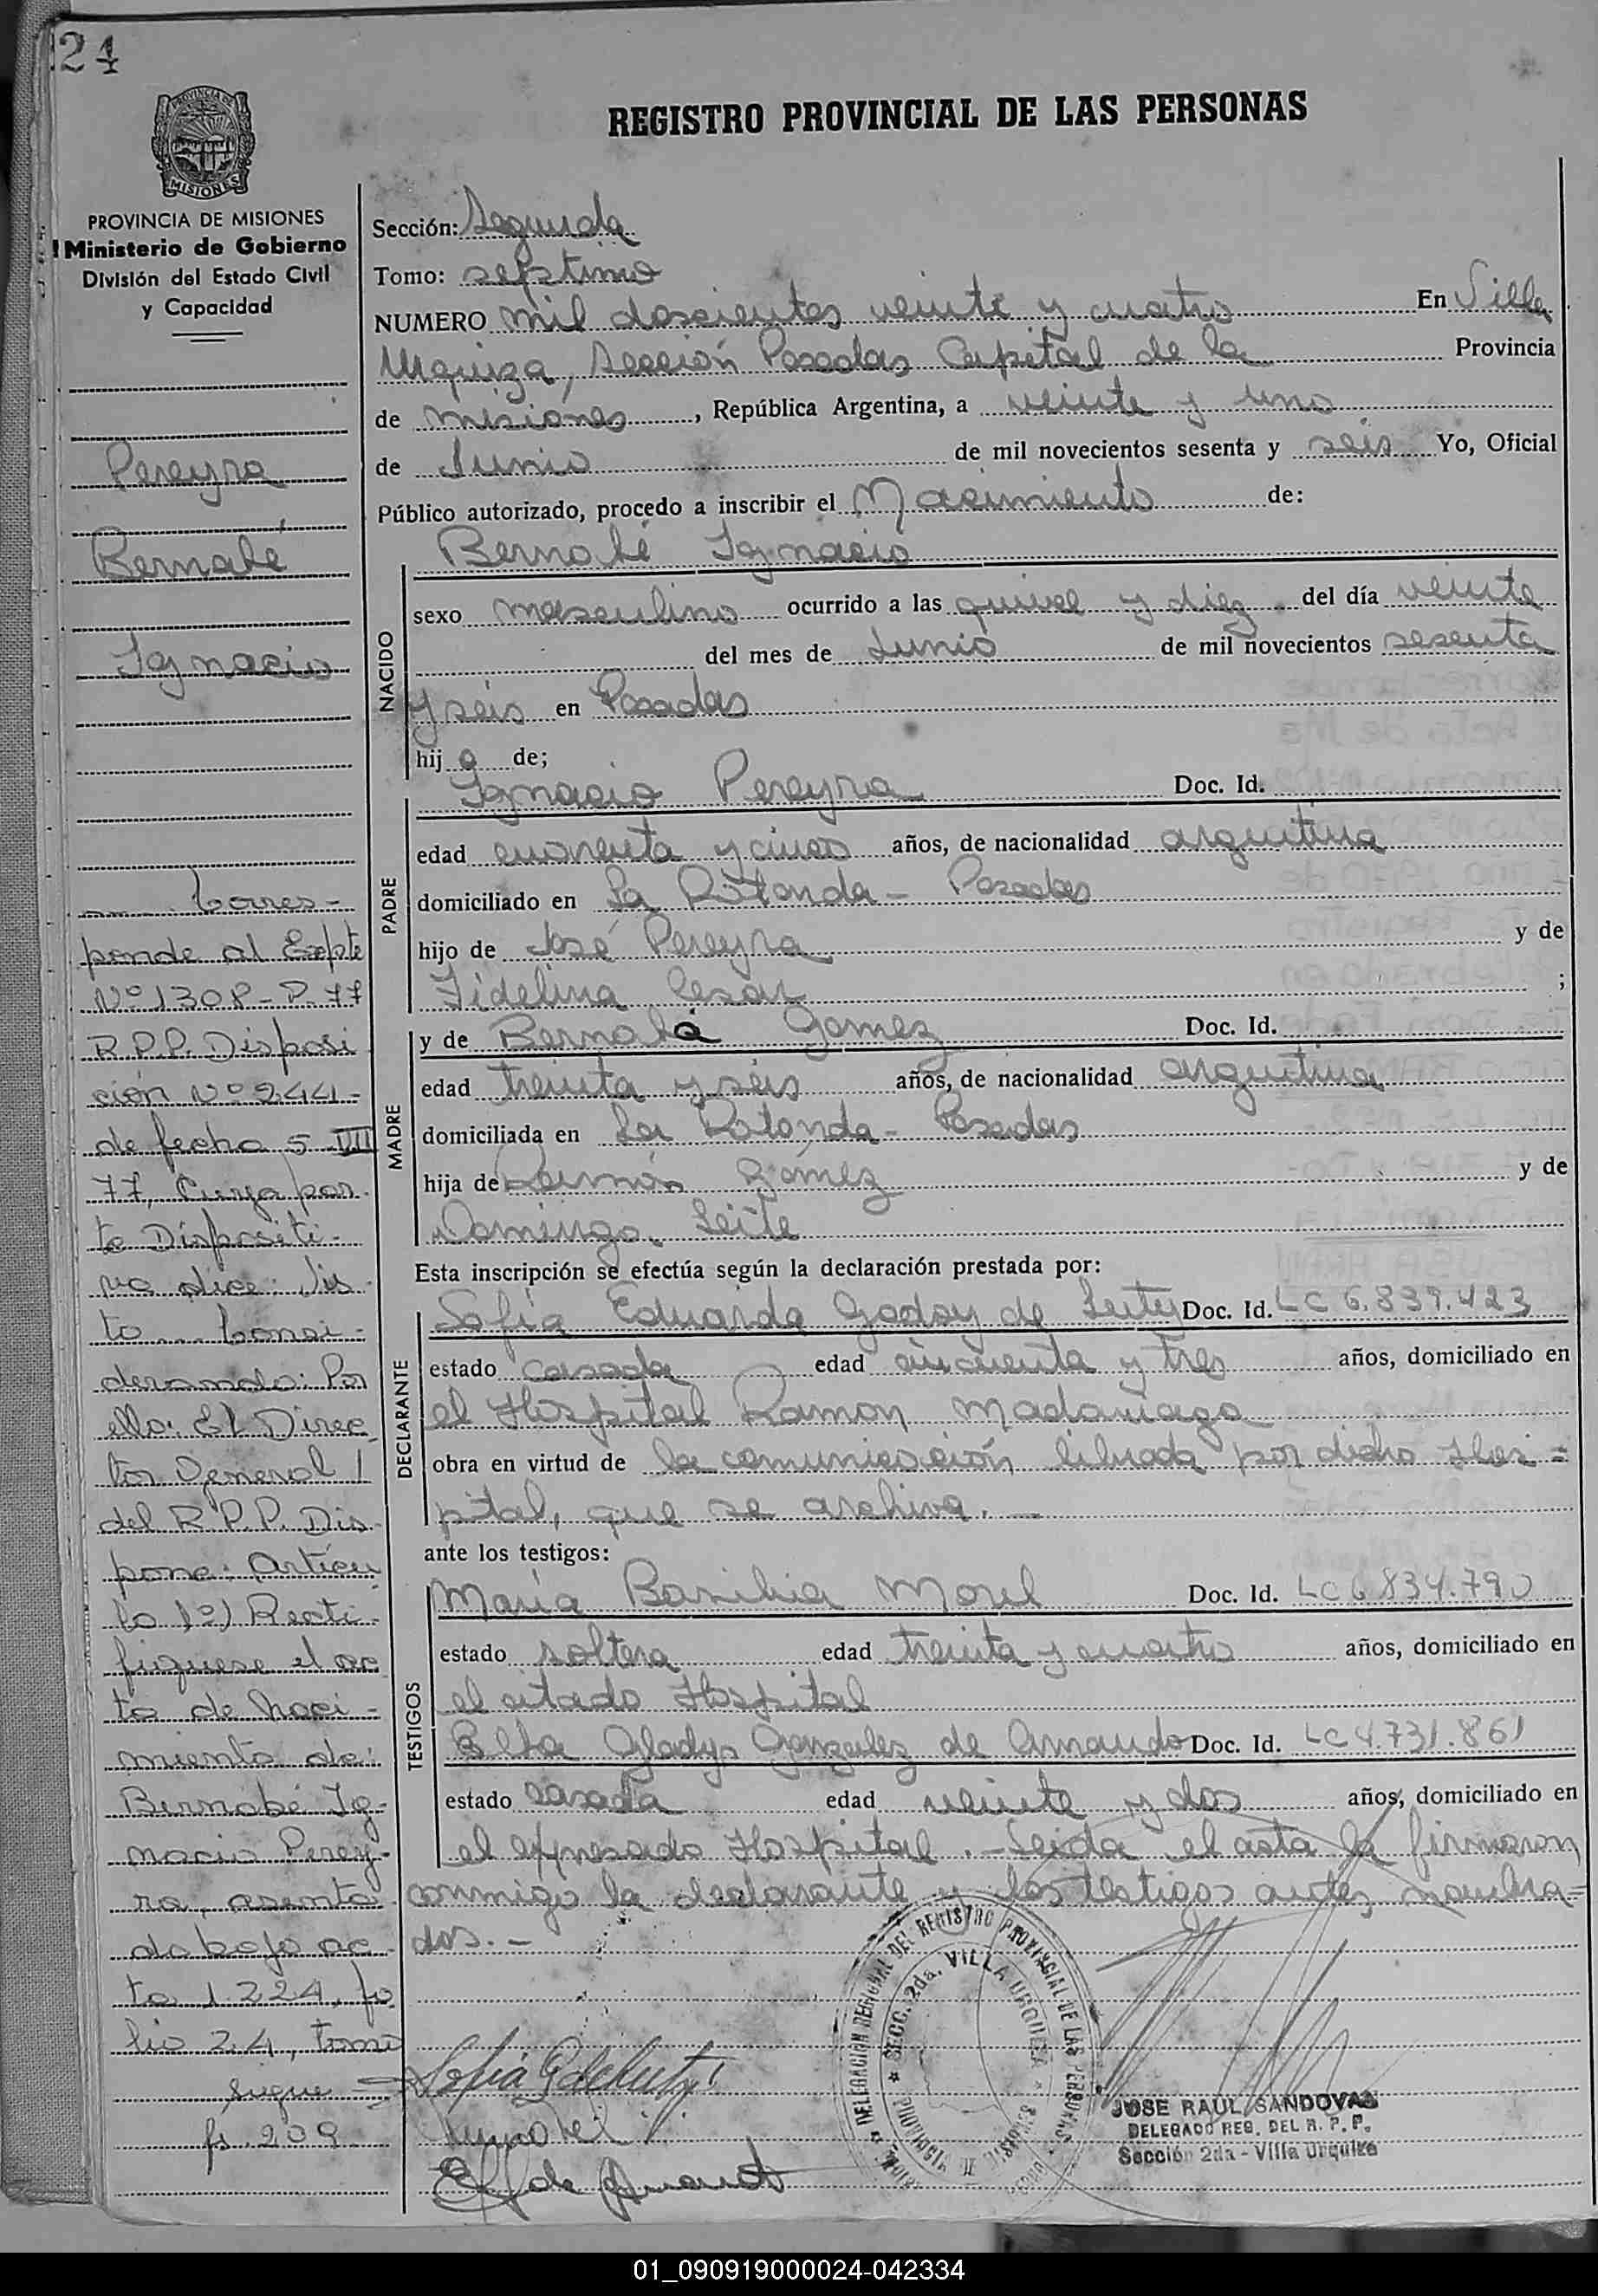 24
REGISTRO PROVINCIAL DE LAS PERSONAS
PROVINCIA DE
MISIONES
PROVINCIA DE MISIONES
Ministerio de Gobierno
División del Estado Civil
y Capacidad
Pereyra
Bernabé
Ignacio
Corres-
ponde al Expte
Nº 1308-P-77
R.P.P. Disposi
ción Nº 244-
de fecha 5-VII
77, Cuya par-
te Dispositi-
va dice: Vis-
to... Consi-
derando: Por
ello: El Direc
tor General
del R.P.P. Dis-
pone: Artícu
lo 1º) Recti-
fíquese el ac
ta de Naci-
miento de:
Bernabé Ig-
nacio Perey-
ra, asenta
da bajo ac-
ta 1.224, fo
lio 24, tomo
sigue
fs. 209
Sección: Segunda
Tomo: septimo
NUMERO mil doscientos veinte y cuatro En Villa
Urquiza, Sección Posadas Capital de la Provincia
de misiones, República Argentina, a veinte y uno
de Junio de mil novecientos sesenta y seis Yo, Oficial
Público autorizado, procedo a inscribir el Nacimiento de:
NACIDO
Bernabé Ignacio
sexo masculino ocurrido a las quince y diez del día veinte
del mes de Junio de mil novecientos sesenta
y seis en Posadas
hij o de;
PADRE
Ignacio Pereyra Doc. Id.
edad cuarenta y cinco años, de nacionalidad argentina
domiciliado en La Rotonda - Posadas
hijo de José Pereyra y de
Fidelina Cesar ;
MADRE
y de Bernabá Gomez Doc. Id.
edad treinta y seis años, de nacionalidad argentina
domiciliada en La Rotonda - Posadas
hija de Ramón Gómez y de
Dominga Leite
Esta inscripción se efectúa según la declaración prestada por:
DECLARANTE
Sofía Eduarda Godoy de Doc. Id. LC 6.839.423
estado casada edad cincuenta y tres años, domiciliado en
el Hospital Ramon Madariaga
obra en virtud de la comunicación librada por dicho Hos=
pital, que se archiva.
ante los testigos:
TESTIGOS
María Basilia Morel Doc. Id. LC 6.834.790
estado soltera edad treinta y cuatro años, domiciliado en
el citado Hospital
Elba Gladys Gonzalez de Amando Doc. Id. LC 4.731.861
estado casada edad veinte y dos años, domiciliado en
el expresado Hospital.- Leida el acta la firmaron
conmigo la declarante y los testigos antes nombra=
dos.-
DELEGACION REGIONAL DEL REGISTRO PROVINCIAL DE LAS PERSONAS
SECC. 2da. VILLA URQUIZA
PROVINCIA DE MISIONES
JOSE RAUL SANDOVAL
DELEGADO REG. DEL R. P. P.
Sección 2da - Villa Urquiza
01_090919000024-042334